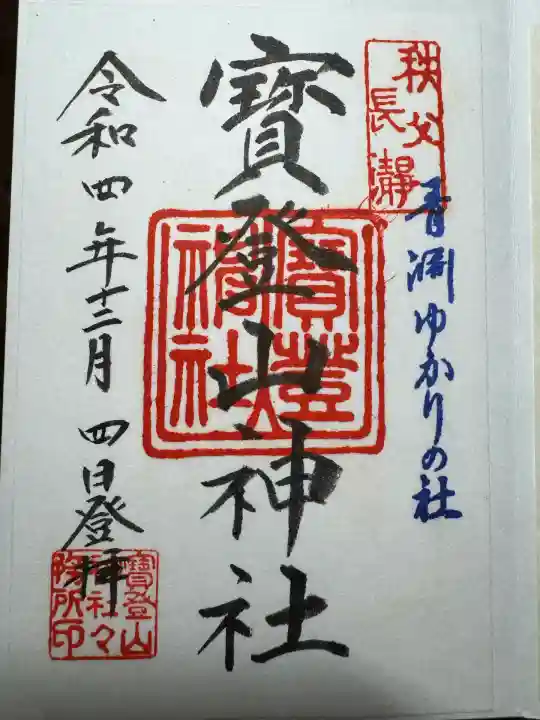 秩父
長瀞
青淵ゆかりの社
寳登山神社
寳登
神社
令和四年十二月四日登拝
寳登山
神社々
務所印